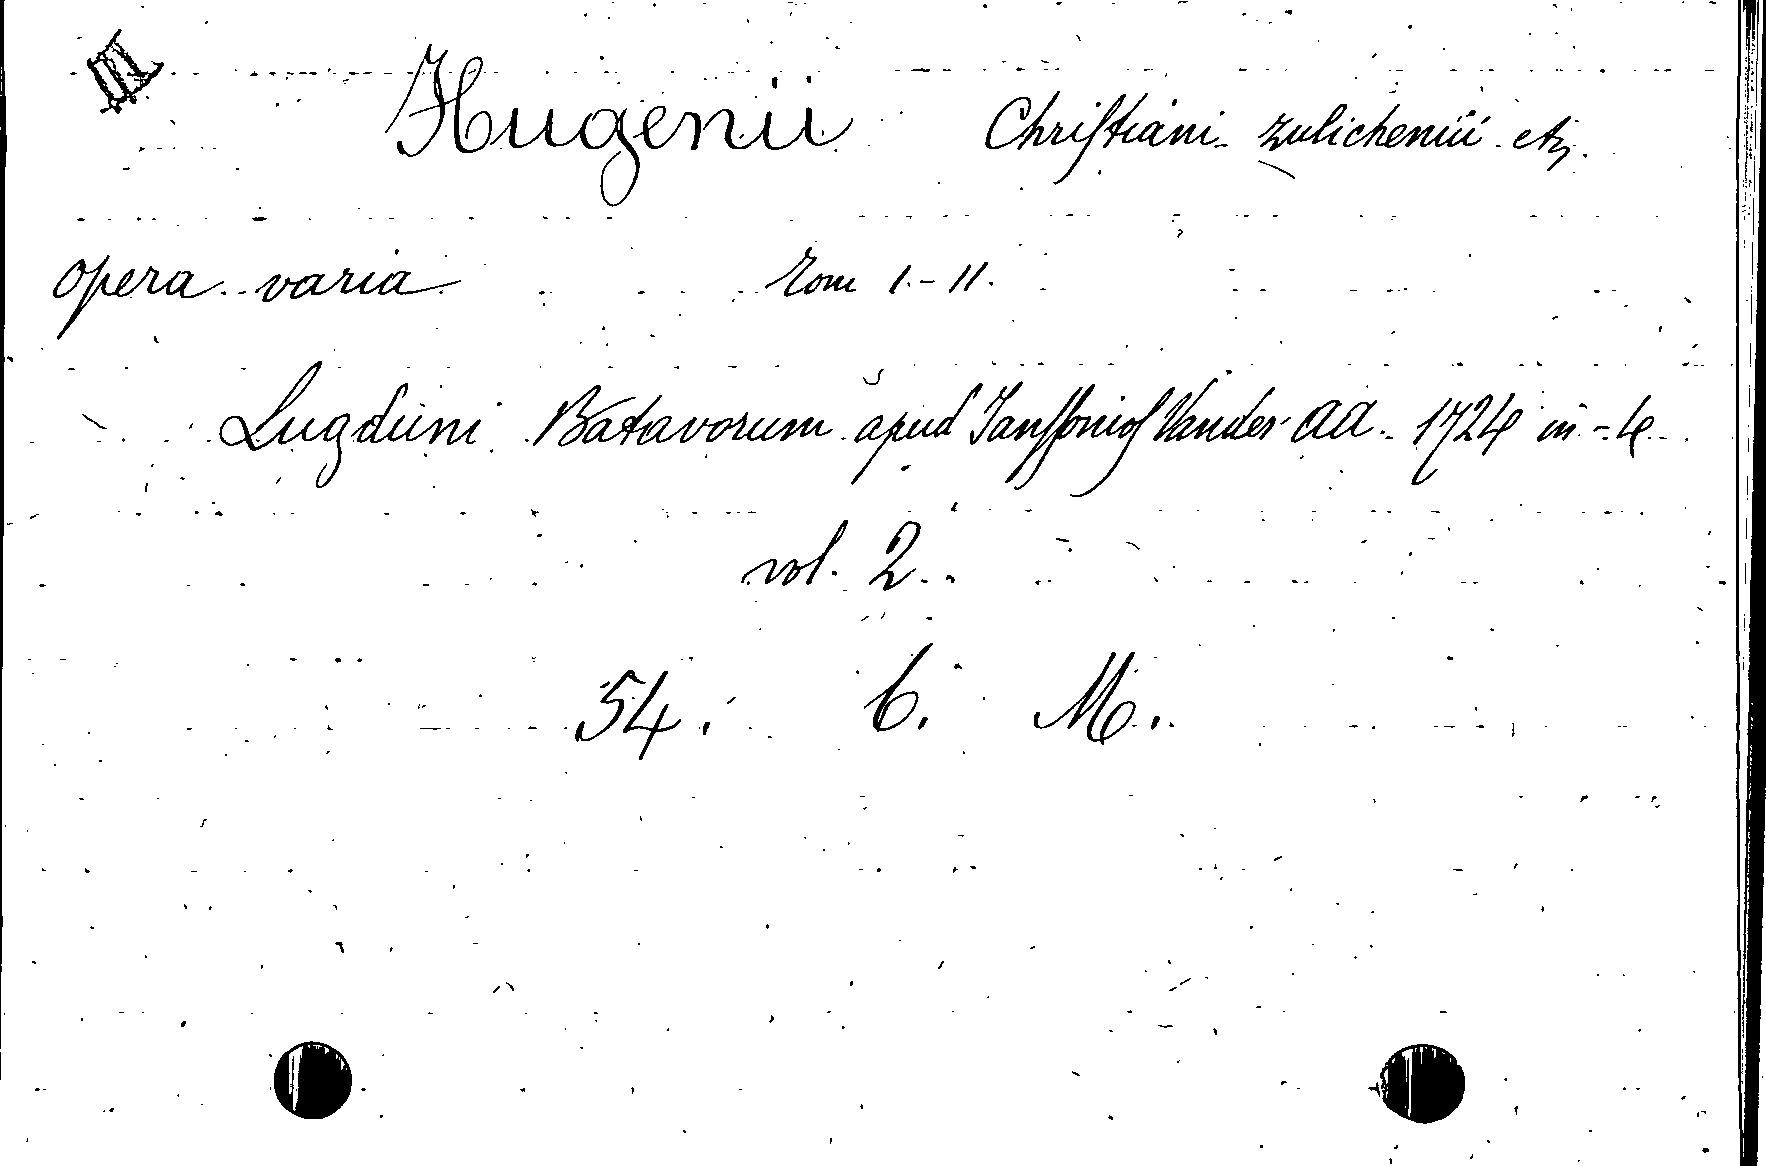 III
Hugenii Chriſtiani Zulichenii etz.
Opera varia Tom I.-II.
Lugduni Batavorum apud Janſſonios Vander Aa 1724 in-4
vol. 2.
54. 6. M.